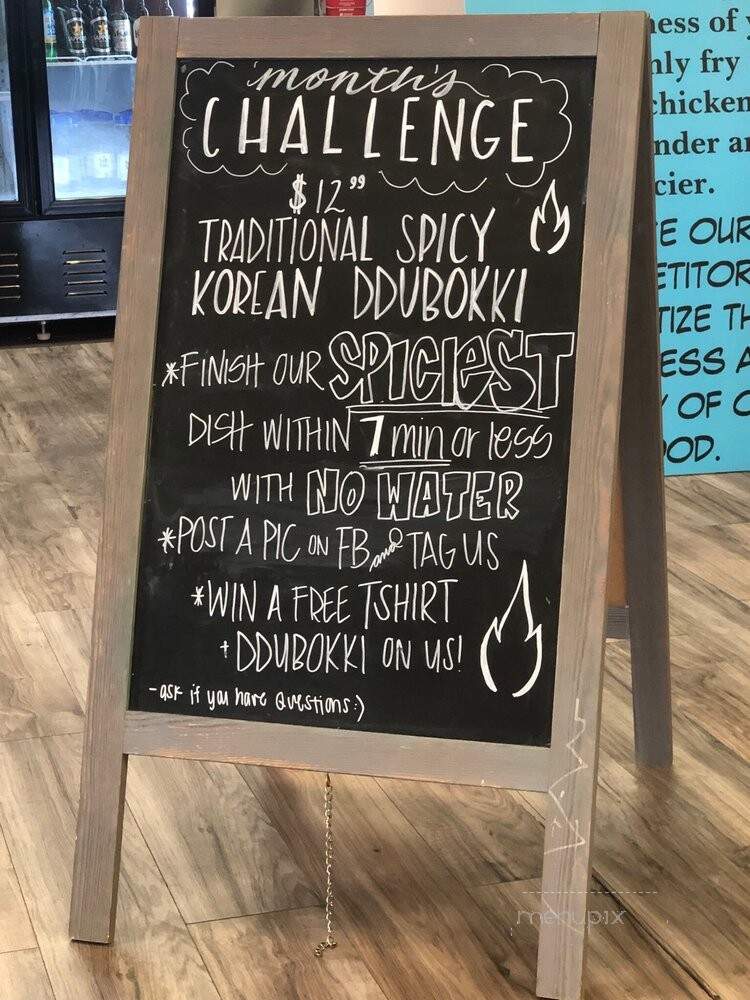 month's
CHALLENGE
$12⁹⁹
TRADITIONAL SPICY
KOREAN DDUBOKKI
*FINISH OUR SPICIEST
DISH WITHIN 7 min or less
WITH NO WATER
*POST A PIC ON FB and TAG US
*WIN A FREE TSHIRT
+ DDUBOKKI ON US!
-ask if you have Questions:)
ness of y
nly fry
chicken
nder an
cier.
E OUR
ETITOR
TIZE TH
ESS A
Y OF O
OOD.
menupix